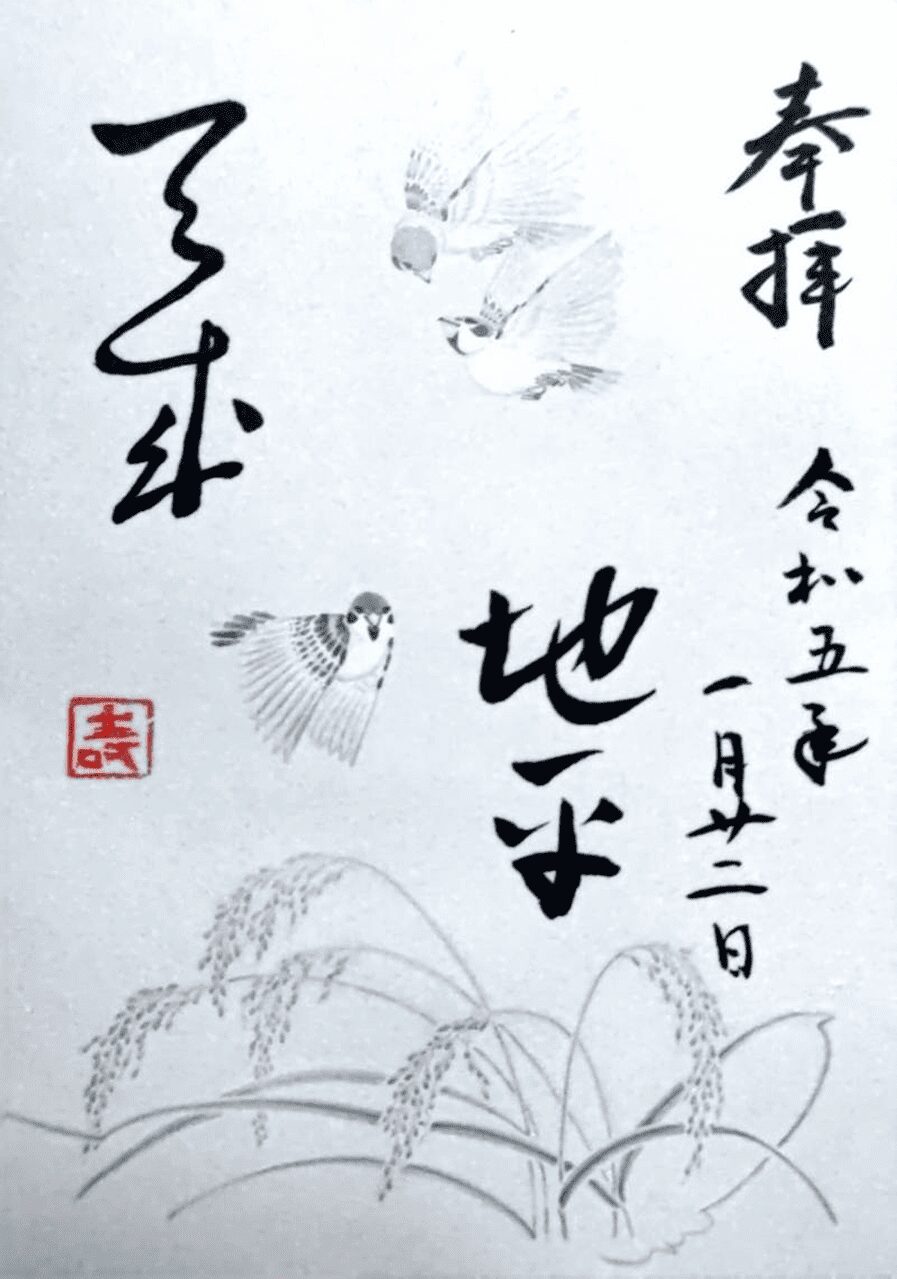 奉拝
令和五年
一月廿二日
地平
天成
壽